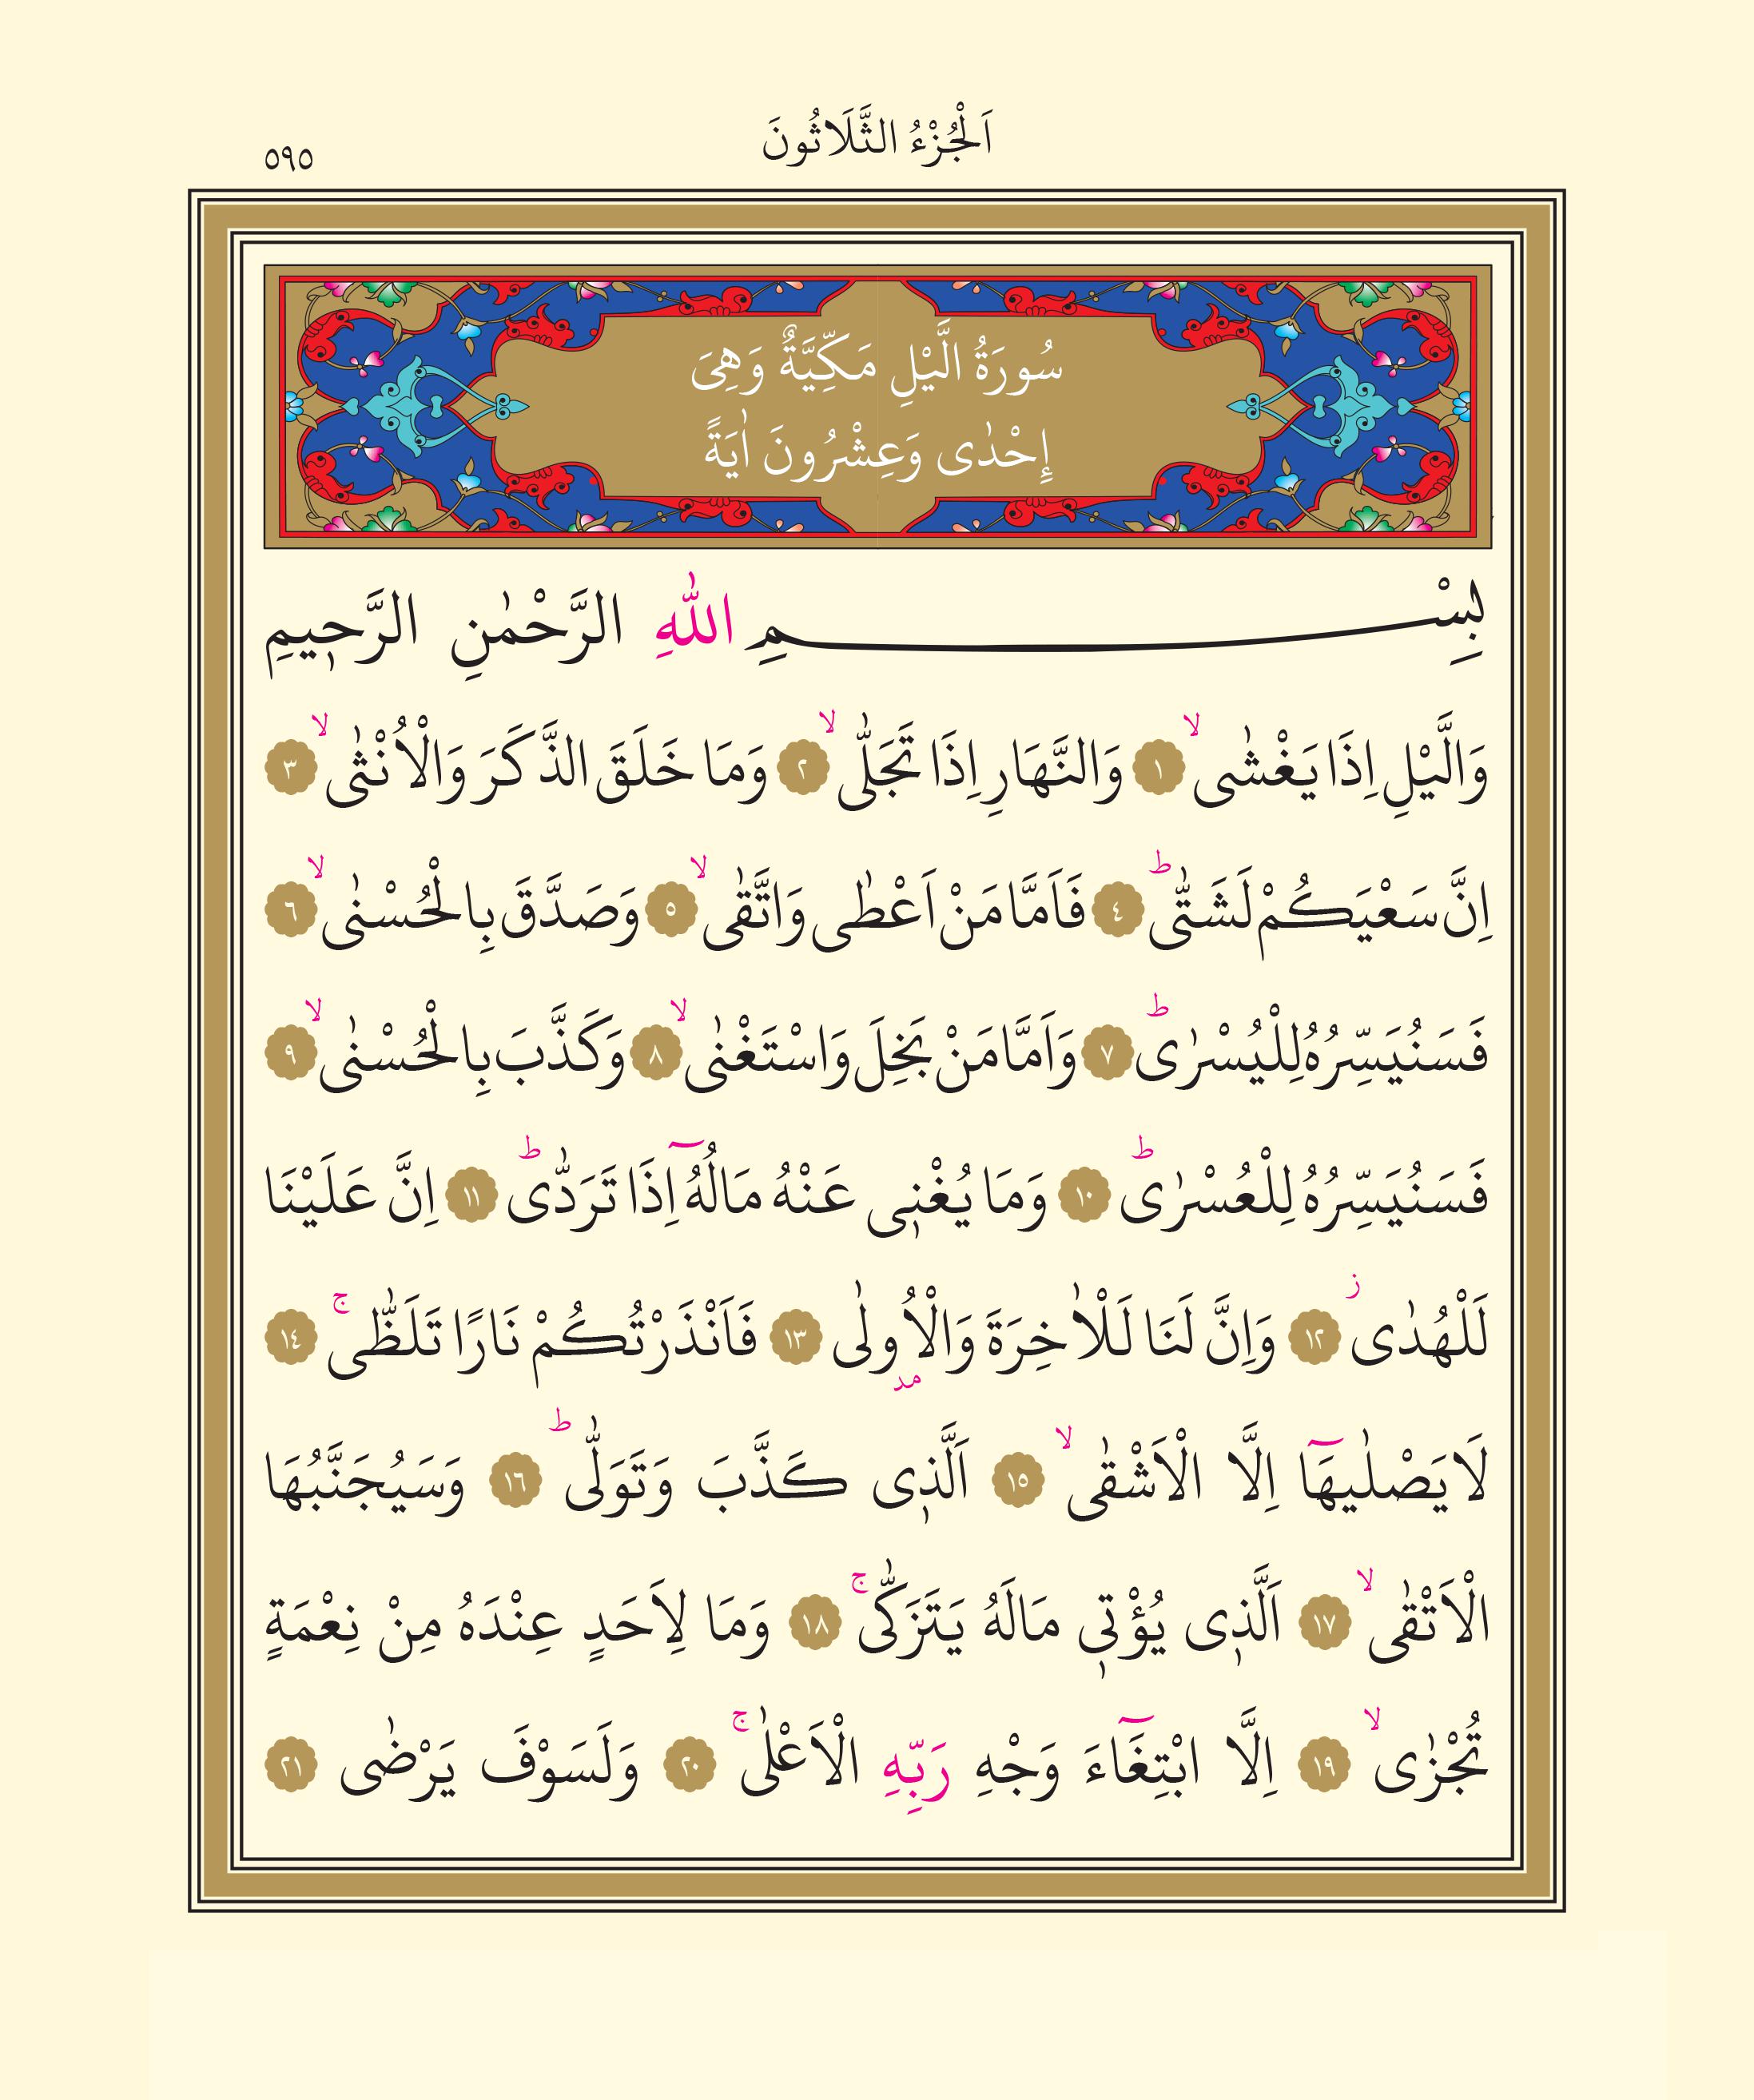 اَلْجُزْءُ الثَّلَاثُونَ
٥٩٥
سُورَةُ الَّيْلِ مَكِّيَّةٌ وَهِىَ
إِحْدٰى وَعِشْرُونَ اٰيَةً
بِسْمِ اللّٰهِ الرَّحْمٰنِ الرَّحٖيمِ
وَالَّيْلِ اِذَا يَغْشٰىۙ ﴿١﴾ وَالنَّهَارِ اِذَا تَجَلّٰىۙ ﴿٢﴾ وَمَا خَلَقَ الذَّكَرَ وَالْاُنْثٰىۙ ﴿٣﴾
اِنَّ سَعْيَكُمْ لَشَتّٰىؕ ﴿٤﴾ فَاَمَّا مَنْ اَعْطٰى وَاتَّقٰىۙ ﴿٥﴾ وَصَدَّقَ بِالْحُسْنٰىۙ ﴿٦﴾
فَسَنُيَسِّرُهُ لِلْيُسْرٰىؕ ﴿٧﴾ وَاَمَّا مَنْ بَخِلَ وَاسْتَغْنٰىۙ ﴿٨﴾ وَكَذَّبَ بِالْحُسْنٰىۙ ﴿٩﴾
فَسَنُيَسِّرُهُ لِلْعُسْرٰىؕ ﴿١٠﴾ وَمَا يُغْنٖى عَنْهُ مَالُهُٓ اِذَا تَرَدّٰىؕ ﴿١١﴾ اِنَّ عَلَيْنَا
لَلْهُدٰىؗ ﴿١٢﴾ وَاِنَّ لَنَا لَلْاٰخِرَةَ وَالْاُولٰى ﴿١٣﴾ فَاَنْذَرْتُكُمْ نَارًا تَلَظّٰىۚ ﴿١٤﴾
مد
لَا يَصْلٰيهَٓا اِلَّا الْاَشْقٰىۙ ﴿١٥﴾ اَلَّذٖى كَذَّبَ وَتَوَلّٰىؕ ﴿١٦﴾ وَسَيُجَنَّبُهَا
الْاَتْقٰىۙ ﴿١٧﴾ اَلَّذٖى يُؤْتٖى مَالَهُ يَتَزَكّٰىۚ ﴿١٨﴾ وَمَا لِاَحَدٍ عِنْدَهُ مِنْ نِعْمَةٍ
تُجْزٰىۙ ﴿١٩﴾ اِلَّا ابْتِغَٓاءَ وَجْهِ رَبِّهِ الْاَعْلٰىۚ ﴿٢٠﴾ وَلَسَوْفَ يَرْضٰى ﴿٢١﴾